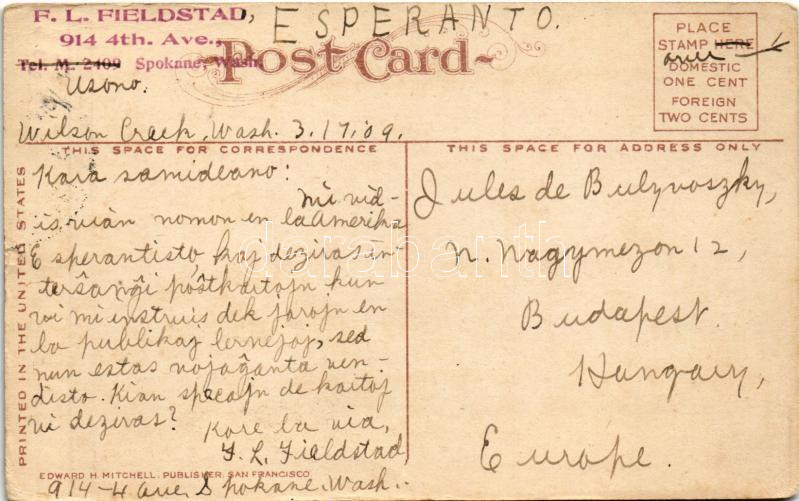 F. L. FIELDSTAD, ESPERANTO.
914 4th. Ave.,
Tel. M. 2409 Spokane, Wash.
Usono.
Post Card
PLACE
STAMP HERE
over
DOMESTIC
ONE CENT
FOREIGN
TWO CENTS
Wilson Creek, Wash. 3.17.09.
THIS SPACE FOR CORRESPONDENCE
THIS SPACE FOR ADDRESS ONLY
PRINTED IN THE UNITED STATES
Kara samideano:
Mi vid-
is vian nomon en la Amerika
Esperantisto, kaj deziras in-
terŝanĝi poŝtkartojn kun
vi mi instruis dek jarojn en
la publikaj lernejoj, sed
nun estas vojaĝanta ven-
disto. Kian specajn de kartoj
vi deziras?
Kore la via,
F. L. Fieldstad,
914-4 Ave. Spokane, Wash.
Jules de Bulyvoszky,
N. Nagymezon 12,
Budapest.
Hungary,
Europe.
EDWARD H. MITCHELL, PUBLISHER, SAN FRANCISCO.
darabanth